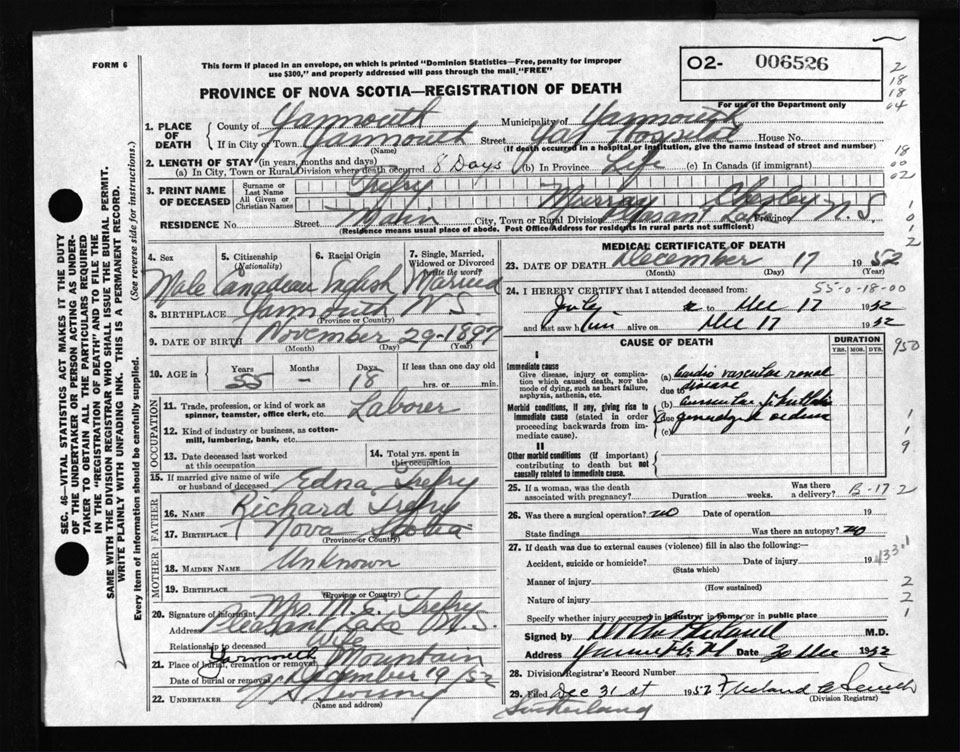 FORM 6
This form if placed in an envelope, on which is printed "Dominion Statistics—Free, penalty for improper
use $300," and properly addressed will pass through the mail "FREE"
O2- 006526
For use of the Department only
PROVINCE OF NOVA SCOTIA—REGISTRATION OF DEATH
1. PLACE OF DEATH
County of Yarmouth Municipality of Yarmouth
If in City or Town Yarmouth Street Hospital House No.
(Name) (If death occurred in a hospital or institution, give the name instead of street and number)
2. LENGTH OF STAY (in years, months and days)
(a) In City, Town or Rural Division where death occurred 8 Days (b) In Province Life (c) In Canada (if immigrant)
3. PRINT NAME OF DECEASED
Surname or Last Name Trefry
All Given or Christian Names Murray Chesley
RESIDENCE No. Street Main City, Town or Rural Division Pleasant Lake Province N.S.
(Residence means usual place of abode. Post Office Address for residents in rural parts not sufficient)
4. Sex Male
5. Citizenship (Nationality) Canadian
6. Racial Origin English
7. Single, Married, Widowed or Divorced (write the word) Married
8. BIRTHPLACE Yarmouth N.S.
(Province or Country)
9. DATE OF BIRTH November 29-1897
(Month) (Day) (Year)
10. AGE in Years 55 — Days 18 If less than one day
hrs. or min.
OCCUPATION
11. Trade, profession, or kind of work as spinner, teamster, office clerk, etc. Laborer
12. Kind of industry or business, as cotton-mill, lumbering, bank, etc.
13. Date deceased last worked at this occupation
14. Total yrs. spent in this occupation
15. If married give name of wife or husband of deceased Edna Trefry
FATHER
16. NAME Richard Trefry
17. BIRTHPLACE Nova Scotia
(Province or Country)
MOTHER
18. MAIDEN NAME Unknown
19. BIRTHPLACE
(Province or Country)
20. Signature of informant Mrs. M. C. Trefry
Address Pleasant Lake N.S.
Relationship to deceased Wife
21. Place of burial, cremation or removal Yarmouth Mountain
Date of burial or removal December 19/52
22. UNDERTAKER Sweeny
(Name and address)
MEDICAL CERTIFICATE OF DEATH
23. DATE OF DEATH December 17 1952
(Month) (Day) (Year)
55-0-18-00
24. I HEREBY CERTIFY that I attended deceased from:
July to Dec 17 1952
and last saw him alive on Dec 17 1952
CAUSE OF DEATH
DURATION
YRS. MOS. DYS.
I
Immediate cause
Give disease, injury or complication which caused death, not the mode of dying, such as heart failure, asphyxia, asthenia, etc.
(a) Cardio vascular renal disease
due to
Morbid conditions, if any, giving rise to immediate cause (stated in order proceeding backwards from immediate cause).
(b) auricular fibrillation
due to
(c) generalized oedema
II
Other morbid conditions (if important) contributing to death but not causally related to immediate cause.
25. If a woman, was the death associated with pregnancy? Duration weeks. Was there a delivery?
B-17
26. Was there a surgical operation? no Date of operation 19
State findings Was there an autopsy? no
27. If death was due to external causes (violence) fill in also the following:—
Accident, suicide or homicide? Date of injury 19
(State which)
Manner of injury
(How sustained)
Nature of injury
Specify whether injury occurred in industry, in home, or in public place
Signed by M.D.
Address Yarmouth Date 30 Dec 1952
28. Division Registrar's Record Number
29. Filed Dec 31 st 1952
(Division Registrar)
Sutherland
SEC. 46—VITAL STATISTICS ACT MAKES IT THE DUTY
OF THE UNDERTAKER OR PERSON ACTING AS UNDER-
TAKER TO OBTAIN ALL THE PARTICULARS REQUIRED
IN THE "REGISTRATION OF DEATH" AND TO FILE THE
SAME WITH THE DIVISION REGISTRAR WHO SHALL ISSUE THE BURIAL PERMIT.
WRITE PLAINLY WITH UNFADING INK. THIS IS A PERMANENT RECORD.
Every item of information should be carefully supplied. (See reverse side for instructions.)